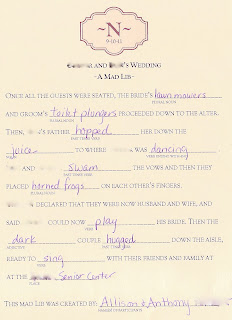 ~N~
9·10·11
AND 'S WEDDING
~A MAD LIB~
ONCE ALL THE GUESTS WERE SEATED, THE BRIDE'S lawnmowers
PLURAL NOUN
AND GROOM'S toilet plungers PROCEEDED DOWN TO THE ALTER.
PLURAL NOUN
THEN, 'S FATHER hopped HER DOWN THE
PAST TENSE VERB
joice TO WHERE WAS dancing
NOUN VERB ENDING WITH ING
AND swam THE VOWS AND THEN THEY
PAST TENSE VERB
PLACED horned frogs ON EACH OTHER'S FINGERS.
PLURAL NOUN
DECLARED THAT THEY WERE NOW HUSBAND AND WIFE, AND
SAID COULD NOW play HIS BRIDE. THEN THE
VERB
dark COUPLE hugged DOWN THE AISLE,
ADJECTIVE PAST TENSE VERB
READY TO sing WITH THEIR FRIENDS AND FAMILY AT
VERB
AT THE Senior Center
PLACE
THIS MAD LIB WAS CREATED BY: Allison & Anthony